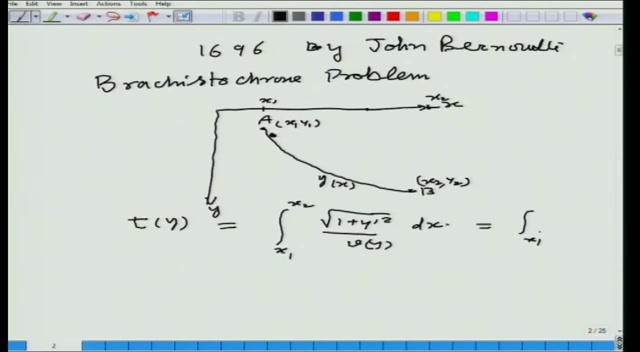 Edit View Insert Actions Tools Help
1696 by John Bernoulli
Brachistochrone Problem
x₁ x₂ x
A (x₁, y₁)
y(x) (x₂, y₂)
B
y
t(y) = ∫_{x₁}^{x₂} √(1+y'²) / v(y) dx = ∫_{x₁}
2 / 25
2